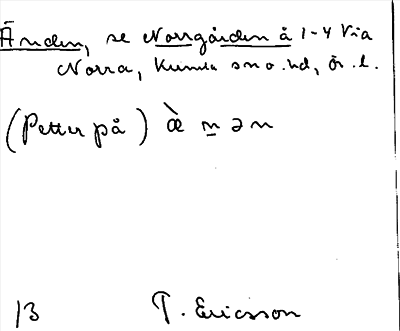 Änden, se Norrgården å 1-4 Via
Norra, Kumla sn o. hd, Ör. l.
(Petter på) æ̀ n̲ ə n
13 T. Ericsson